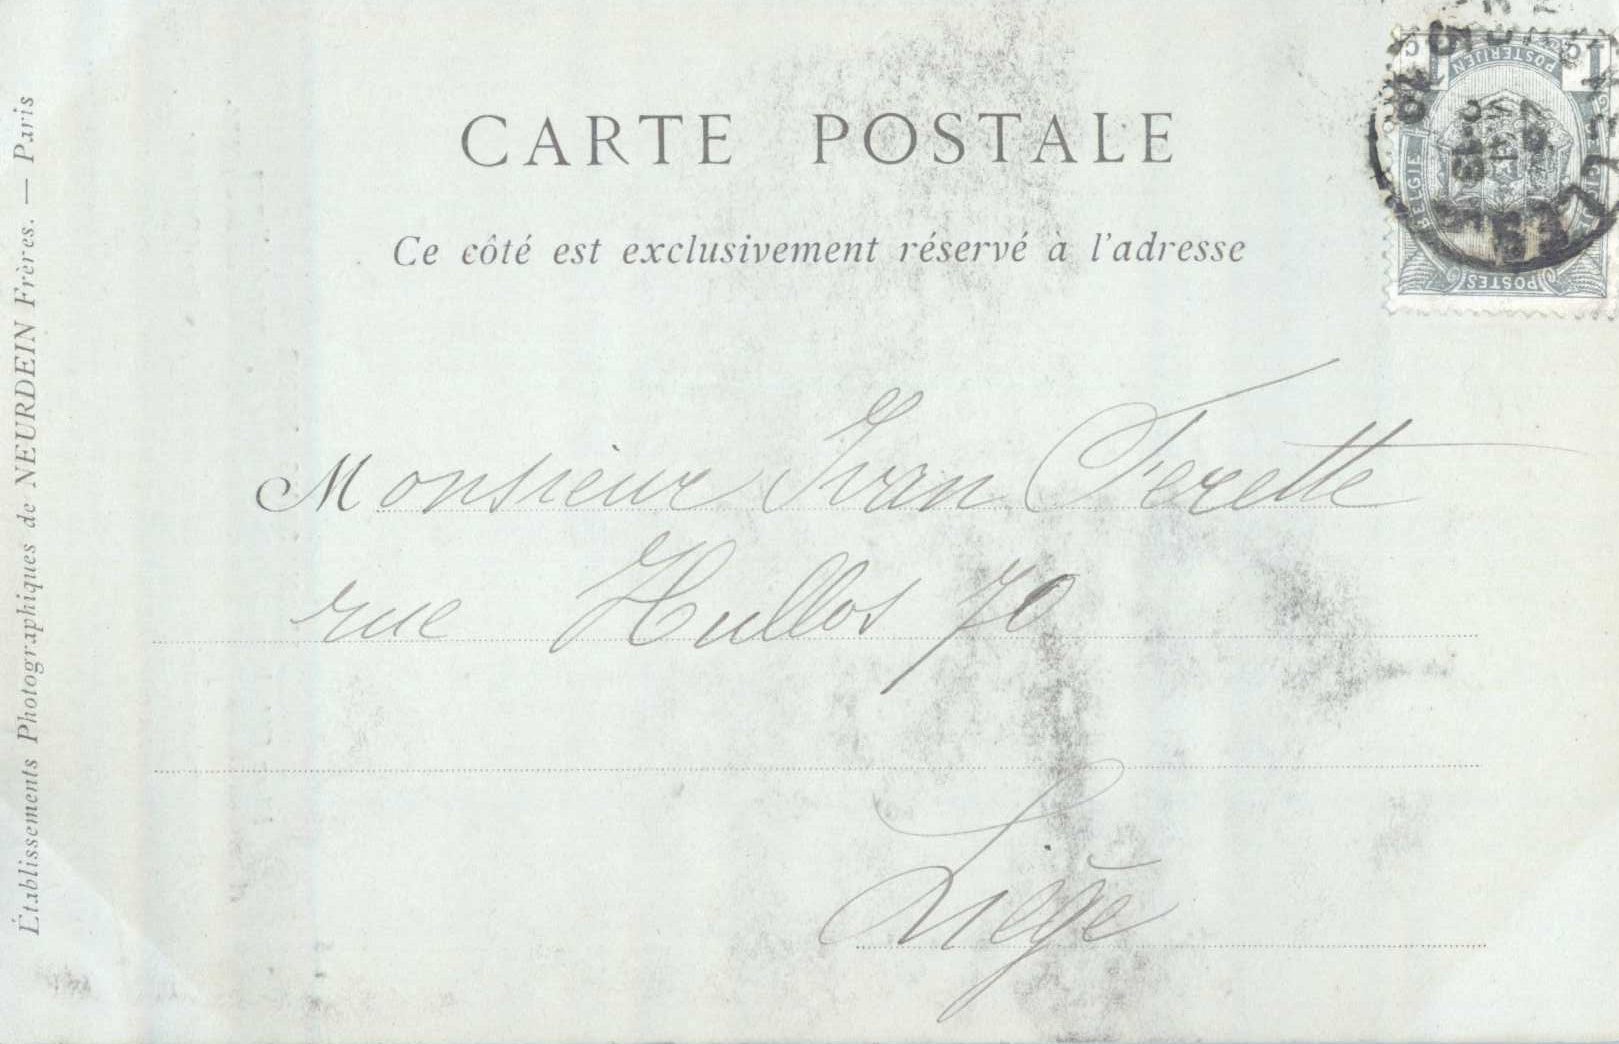 CARTE POSTALE
Ce côté est exclusivement réservé à l'adresse
Monsieur Ivan Ferette
rue Hullos 70
Liège
Établissements Photographiques de NEURDEIN Frères. — Paris
POSTERIJEN
BELGIE
POSTES